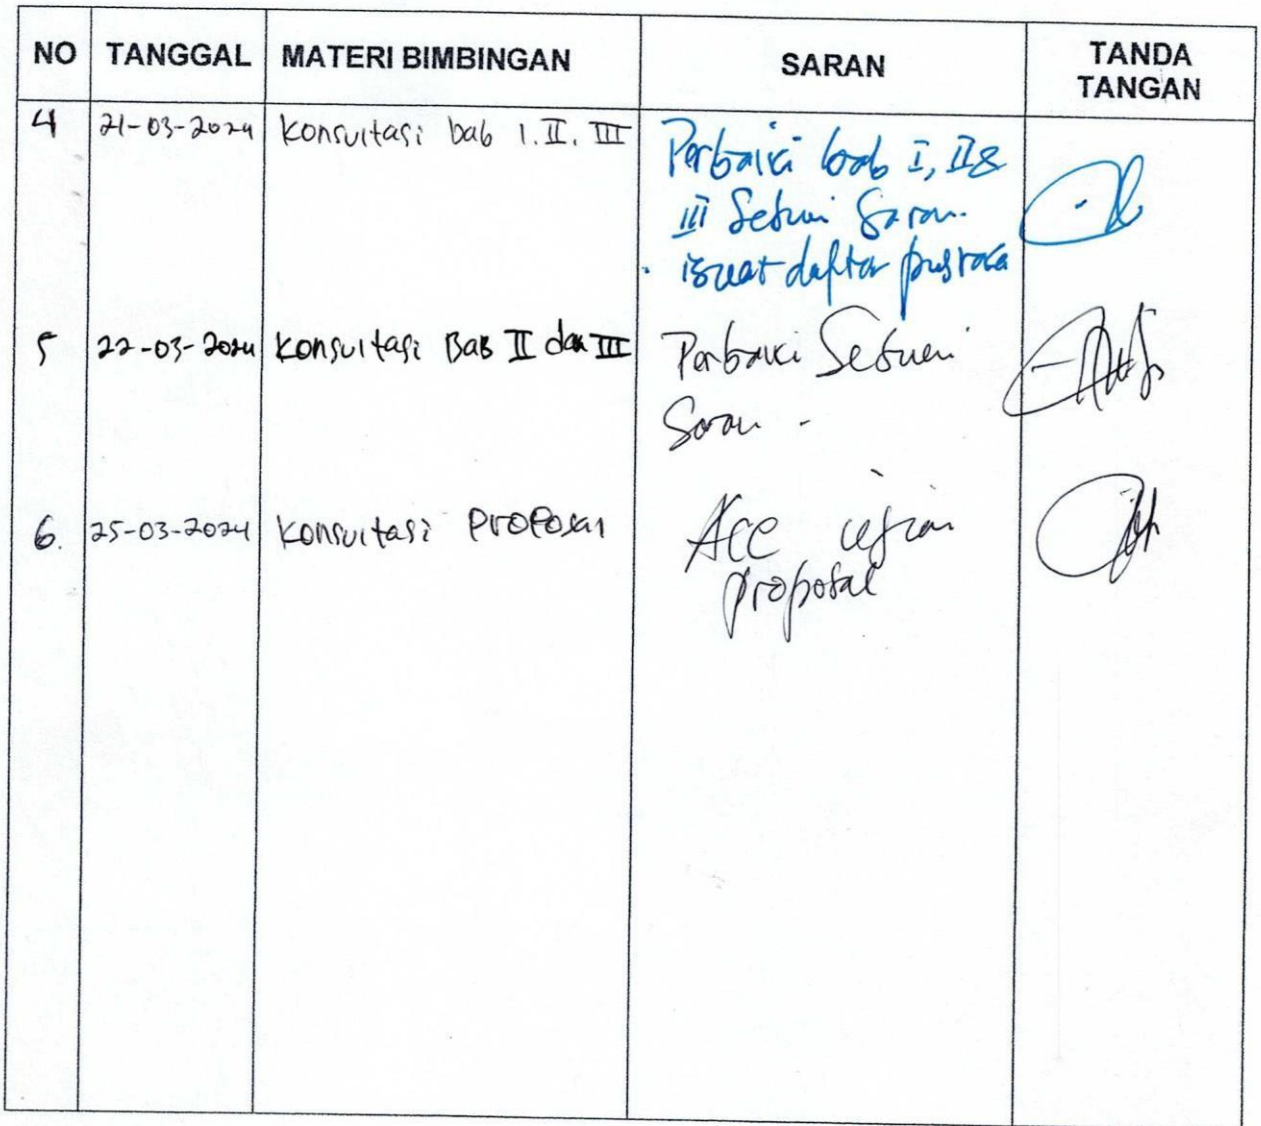 NO TANGGAL MATERI BIMBINGAN SARAN TANDA TANGAN
4 21-03-2024 Konsultasi bab I. II. III
Perbaiki bab I, II &
III Sesuai Saran.
. Buat daftar pustaka
5 22-03-2024 Konsultasi Bab II dan III Perbaiki Sesuai
Saran -
6. 25-03-2024 Konsultasi Proposal Acc ujian
proposal